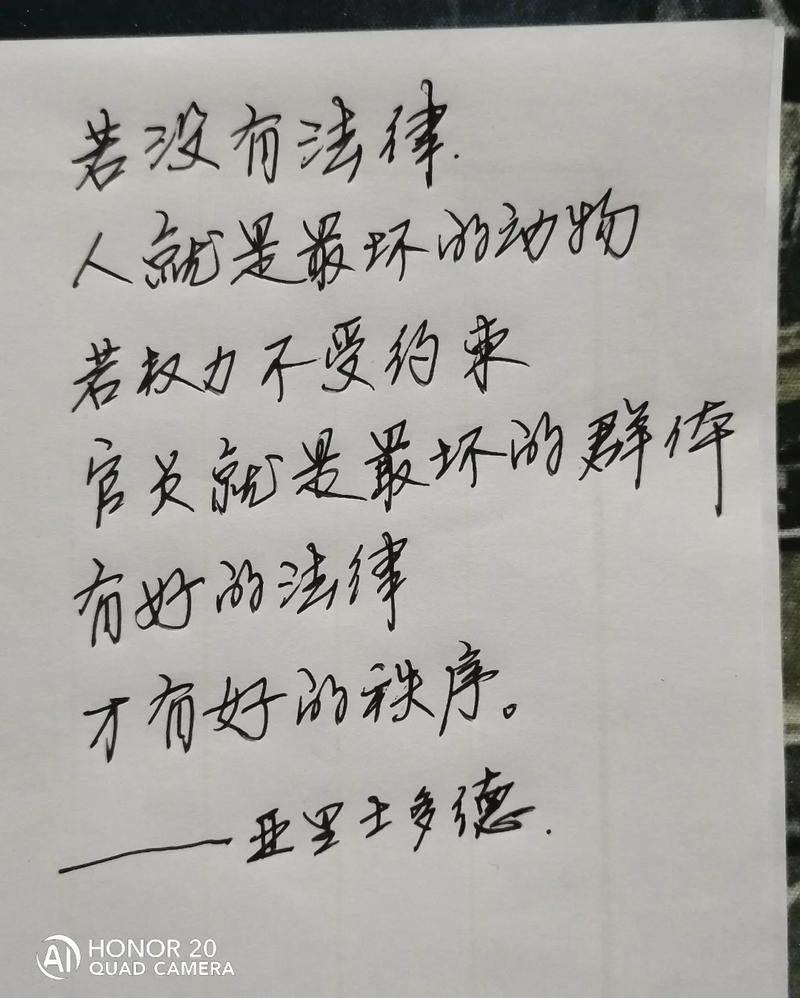 若没有法律.
人就是最坏的动物
若权力不受约束
官员就是最坏的群体
有好的法律
才有好的秩序。
——亚里士多德.
AI HONOR 20
QUAD CAMERA